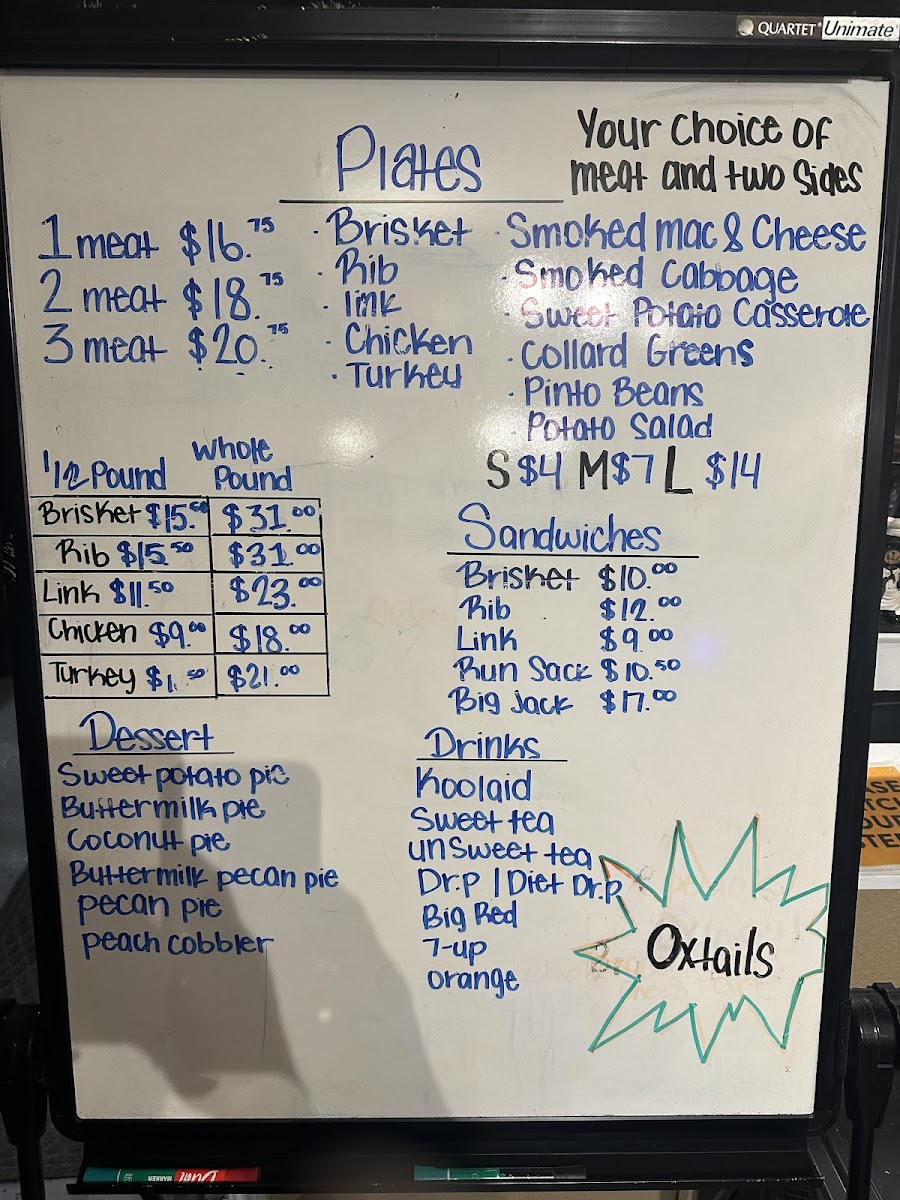 QUARTET Unimate
Plates
Your Choice of
meat and two Sides
1 meat $16.75
2 meat $18.75
3 meat $20.75
· Brisket
· Rib
· link
· Chicken
· Turkey
· Smoked mac & Cheese
· Smoked Cabbage
· Sweet Potato Casserole
· Collard Greens
· Pinto Beans
Potato Salad
S $4 M $7 L $14
1/2 Pound
Whole
Pound
Brisket $15.50 $31.00
Rib $15.50 $31.00
Link $11.50 $23.00
Chicken $9.00 $18.00
Turkey $1 .50 $21.00
Sandwiches
Brisket $10.00
Rib $12.00
Link $9.00
Run Sack $10.50
Big Jack $17.00
Dessert
Sweet potato pie
Buttermilk pie
Coconut pie
Buttermilk pecan pie
pecan pie
peach cobbler
Drinks
Koolaid
Sweet tea
unSweet tea
Dr.p | Diet Dr.p
Big Red
7-up
orange
Oxtails
MARKER